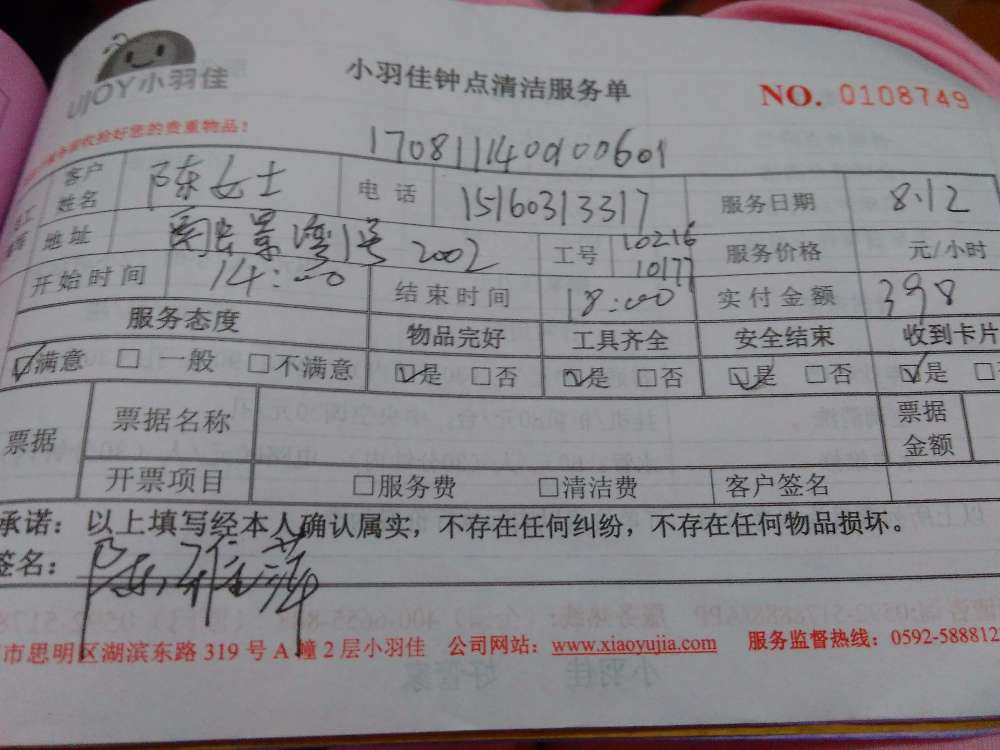 UJOY小羽佳
小羽佳钟点清洁服务单
NO. 0108749
收捡好您的贵重物品!
170811140000601
客户姓名 陈女士 电话 15160313317 服务日期 8.12
地址 景湾1号 2002 工号 10216 10177 服务价格 元/小时
开始时间 14:00 结束时间 18:00 实付金额 398
服务态度 物品完好 工具齐全 安全结束 收到卡片
☑满意 □一般 □不满意 ☑是 □否 ☑是 □否 ☑是 □否 ☑是
票据 票据名称 票据金额
开票项目 □服务费 □清洁费 客户签名
承诺：以上填写经本人确认属实，不存在任何纠纷，不存在任何物品损坏。
签名：陈雅萍
市思明区湖滨东路 319 号 A 幢 2 层小羽佳 公司网站：www.xiaoyujia.com 服务监督热线：0592-588812